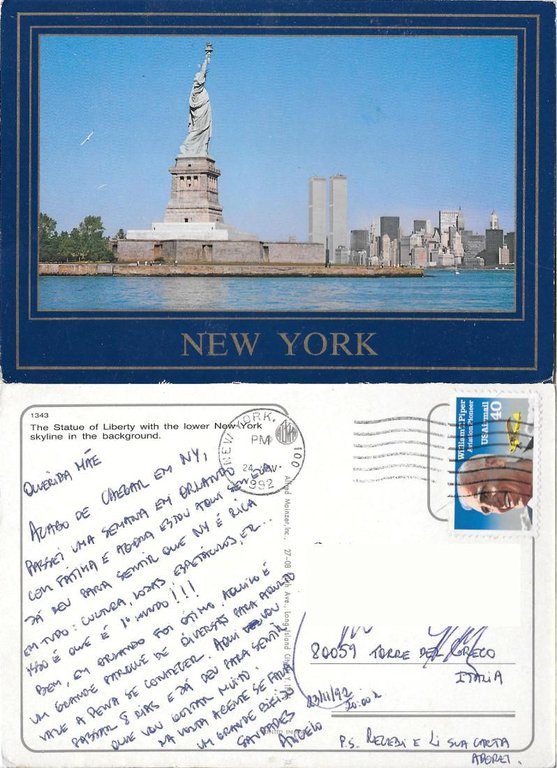 NEW YORK
1343
The Statue of Liberty with the lower New York
skyline in the background.
NEW YORK,
PM
100
24 NOV
1992
William T. Piper
Aviation Pioneer
US Airmail
40
QUERIDA MÃE
ACABO DE CHEGAR EM NY,
PASSEI UMA SEMANA EM ORLANDO
COM FÁTIMA E AGORA ESTOU AQUI SEM ELA
JÁ DEU PARA SENTIR QUE NY É RICA
EM TUDO: CULTURA, LOJAS, ESPETÁCULOS, ETC...
ISSO É QUE É 1º MUNDO!!!
BEM, EM ORLANDO FOI ÓTIMO, AQUILO É
UM GRANDE PARQUE DE DIVERSÃO PARA ADULTO
VALE A PENA SE CONHECER. AQUI EU VOU
PASSAR 8 DIAS E JÁ DEU PARA SENTIR
QUE VOU GOSTAR MUITO.
NA VOLTA AGENTE SE FALA
UM GRANDE BEIJO
SAUDADES
ANGELO
Alfred Mainzer, Inc., 27-08 Ave., Long Island City,
80059 TORRE DEL GRECO
ITALIA
23/11/92
20:00h
P.S. RECEBI E LI SUA CARTA
ADOREI.